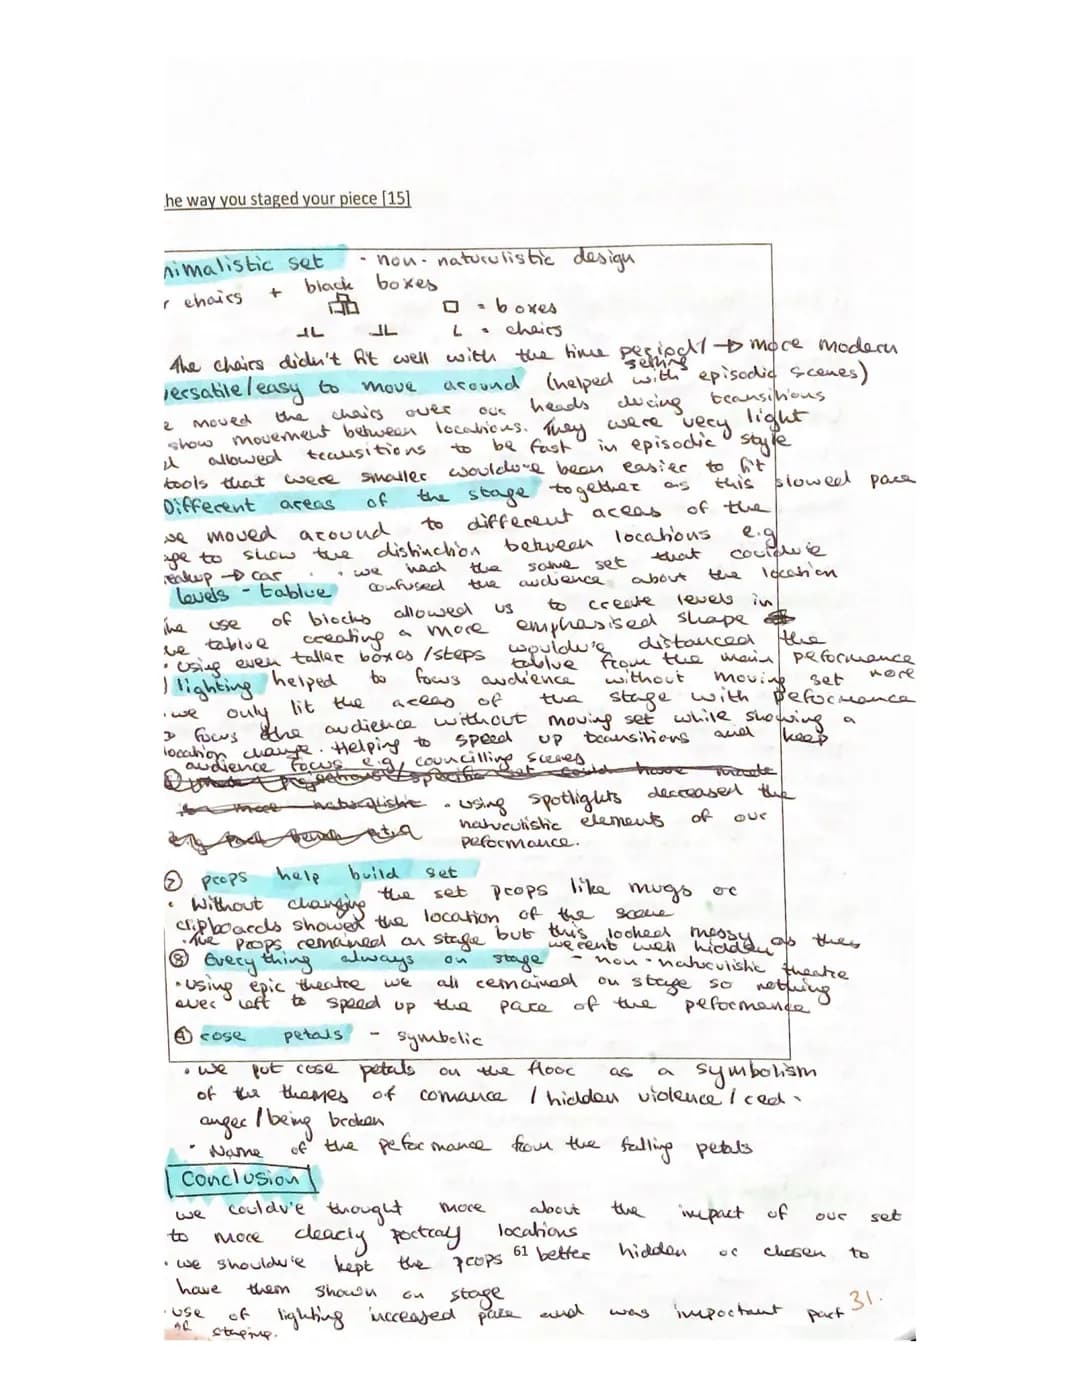 he way you staged your piece [15]
nimalistic set - non-naturulistic design
r chairs + black boxes
□ = boxes
L = chairs
The chairs didn't fit well with the time period/ → more modern
setting
versatile/easy to move around (helped with episodic scenes)
e moved the chairs over our heads during transitions
show movement between locations. They were very light
d allowed transitions to be fast in episodic style
tools that were smaller would've been easier to fit
Different areas of the stage together as this slowed pace
we moved around to different areas of the
age to show the distinction between locations e.g
reakup → car . • we had the same set that could've
confused the audience about the location
levels - tablue
The use of blocks allowed us to create levels in
he tablue creating a more emphasised shape
• using even taller boxes/steps would've distanced the
tablue from the main performance
) lighting helped to focus audience without moving set more
• we only lit the areas of the stage with peformance
to focus the audience without moving set while showing a
location change. Helping to speed up transitions and keep
audience focus e.g, councilling scenes
• using spotlights decreased the
naturulistic elements of our
peformance.
② props help build set
• Without changing the set props like mugs or
clipboards showed the location of the scene
• The props remained on stage but this looked messy as they
werent well hidden
③ Everything always on stage - non-naturulistic theatre
• using epic theatre we all remained on stage so nothing
ever left to speed up the pace of the peformance
④ rose petals - symbolic
• we put rose petals on the floor as a symbolism
of the themes of romance / hidden violence / red.
anger / being broken
• Name of the peformance from the falling petals
Conclusion
we could've thought more about the impact of our set
to more clearly portray locations
• we should've kept the props better hidden or chosen to
61
have them shown on stage
• use of lighting increased pace and was important part
of staging.
31.